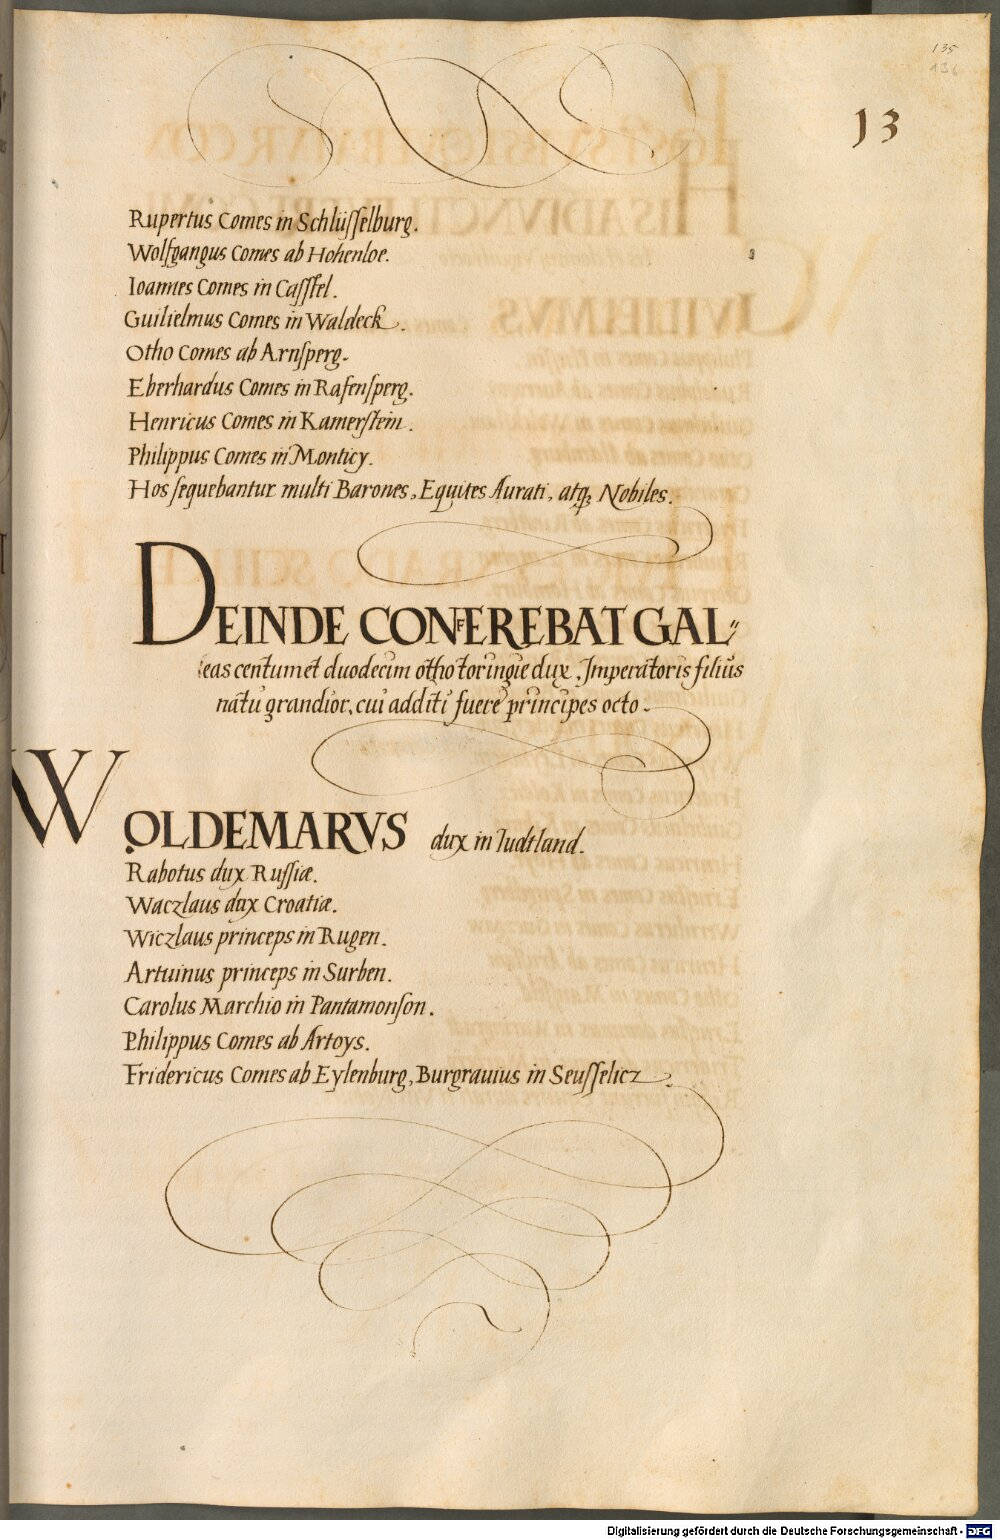 135
136
13
Rupertus Comes in Schlüsselburg.
Wolfgangus Comes ab Hohenloe.
Ioannes Comes in Cassel.
Guilielmus Comes in Waldeck.
Otho Comes ab Arnsperg.
Eberhardus Comes in Rafensperg.
Henricus Comes in Kamerstein.
Philippus Comes in Monticy.
Hos sequebantur multi Barones, Equites Aurati, atq; Nobiles.
DEINDE CONFEREBAT GAL"
leas centum et duodecim otho toringie dux, Imperatoris filius
natu grandior, cui additi fuere principes octo.
WOLDEMARVS dux in Iudtland.
Rabotus dux Russiæ.
Waczlaus dux Croatiæ.
Wiczlaus princeps in Rugen.
Artuinus princeps in Surben.
Carolus Marchio in Pantamonson.
Philippus Comes ab Artoys.
Fridericus Comes ab Eylenburg, Burgrauius in Seusselicz.
Digitalisierung gefördert durch die Deutsche Forschungsgemeinschaft - DFG